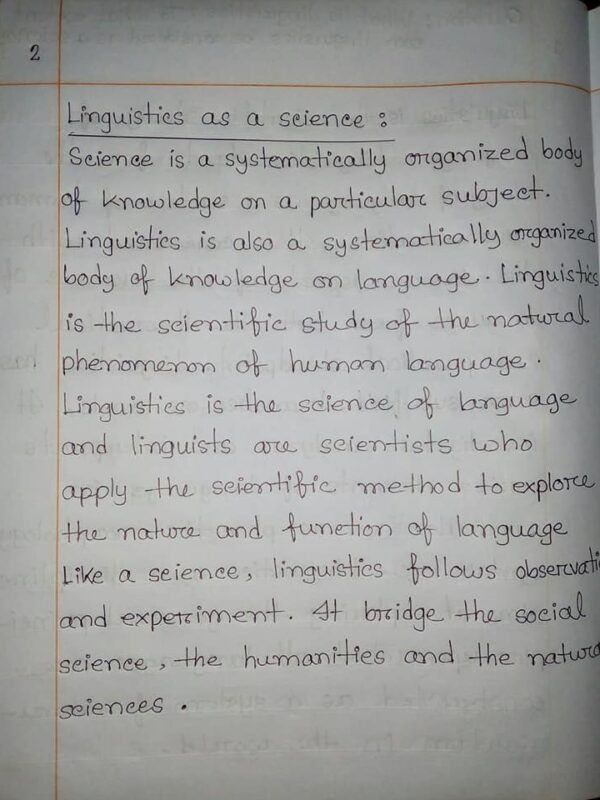 2
Linguistics as a science :
Science is a systematically organized body
of knowledge on a particular subject.
Linguistics is also a systematically organized
body of knowledge on language. Linguistics
is the scientific study of the natural
phenomenon of human language.
Linguistics is the science of language
and linguists are scientists who
apply the scientific method to explore
the nature and function of language
Like a science, linguistics follows observati
and experiment. It bridge the social
science, the humanities and the natura
sciences.